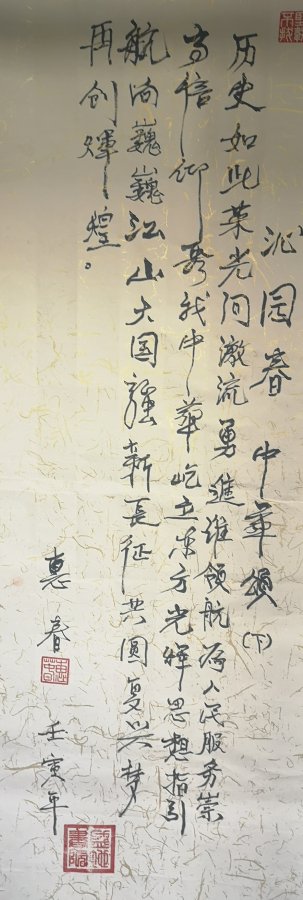 沁园春 中华颂（下）
历史如此荣光问激流勇进谁领航为人民服务崇
高信仰看我中华屹立东方光辉思想指引
航向巍巍江山大国强新长征共圆复兴梦
再创辉煌。
惠春
壬寅年